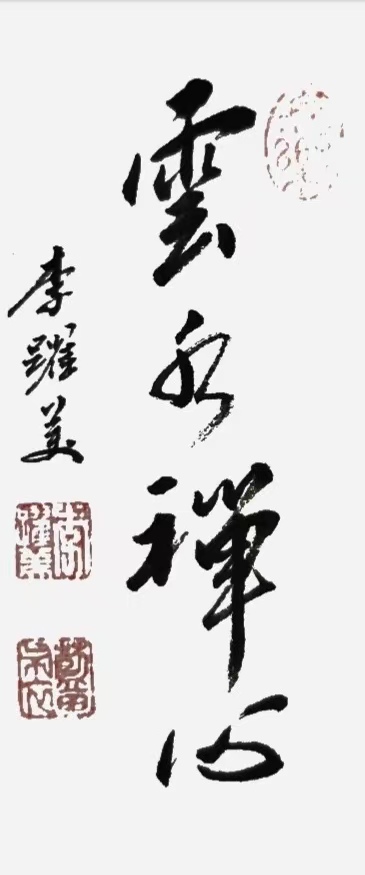 雲水禪心
李躍美